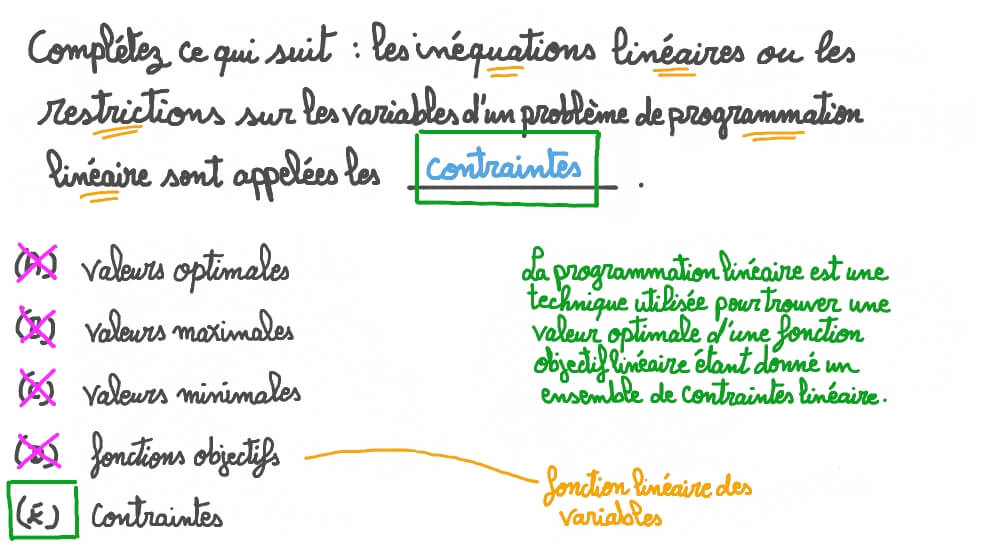 Complétez ce qui suit : les inéquations linéaires ou les
restrictions sur les variables d'un problème de programmation
linéaire sont appelées les contraintes .
(A) valeurs optimales
(B) valeurs maximales
(C) valeurs minimales
(D) fonctions objectifs
(E) Contraintes
La programmation linéaire est une
technique utilisée pour trouver une
valeur optimale d'une fonction
objectif linéaire étant donné un
ensemble de contraintes linéaire.
fonction linéaire des
variables